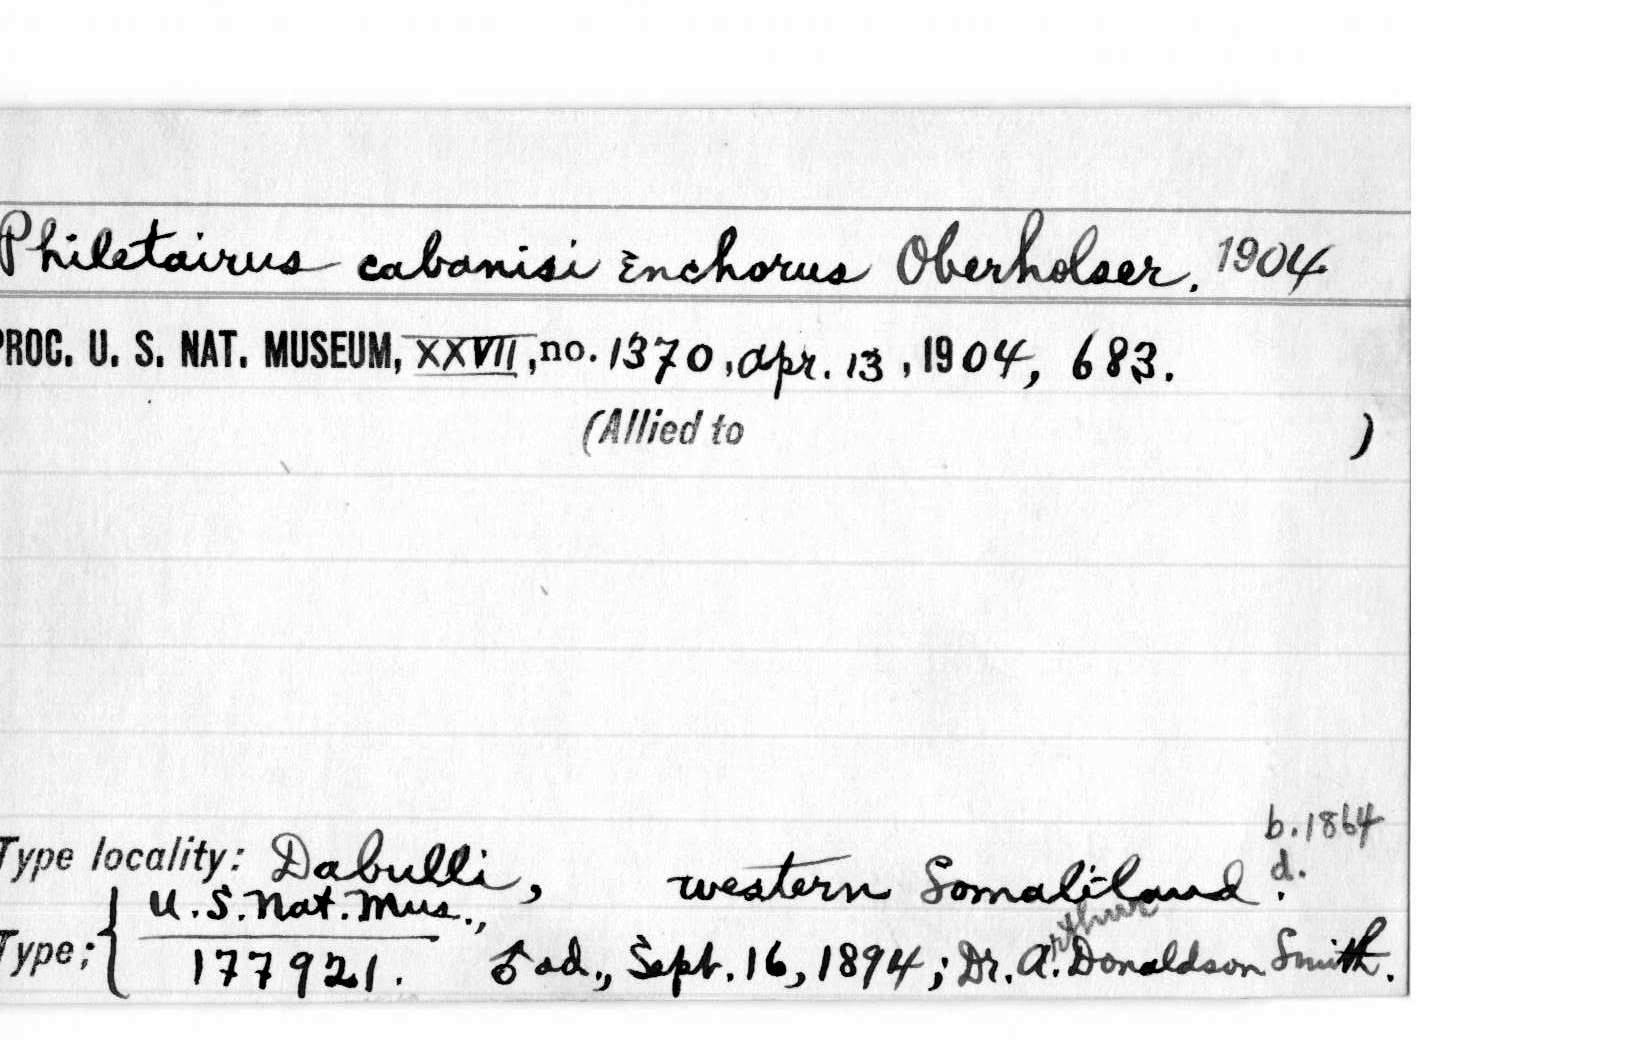 Philetairus cabanisi enchorus Oberholser. 1904
PROC. U. S. NAT. MUSEUM, XXVII, no. 1370, Apr. 13, 1904, 683.
(Allied to )
b. 1864
Type locality: Dabulli, western Somaliland. d.
Type: { U.S. Nat. Mus.,
177921. ♂ ad., Sept. 16, 1894; Dr. Arthur Donaldson Smith.